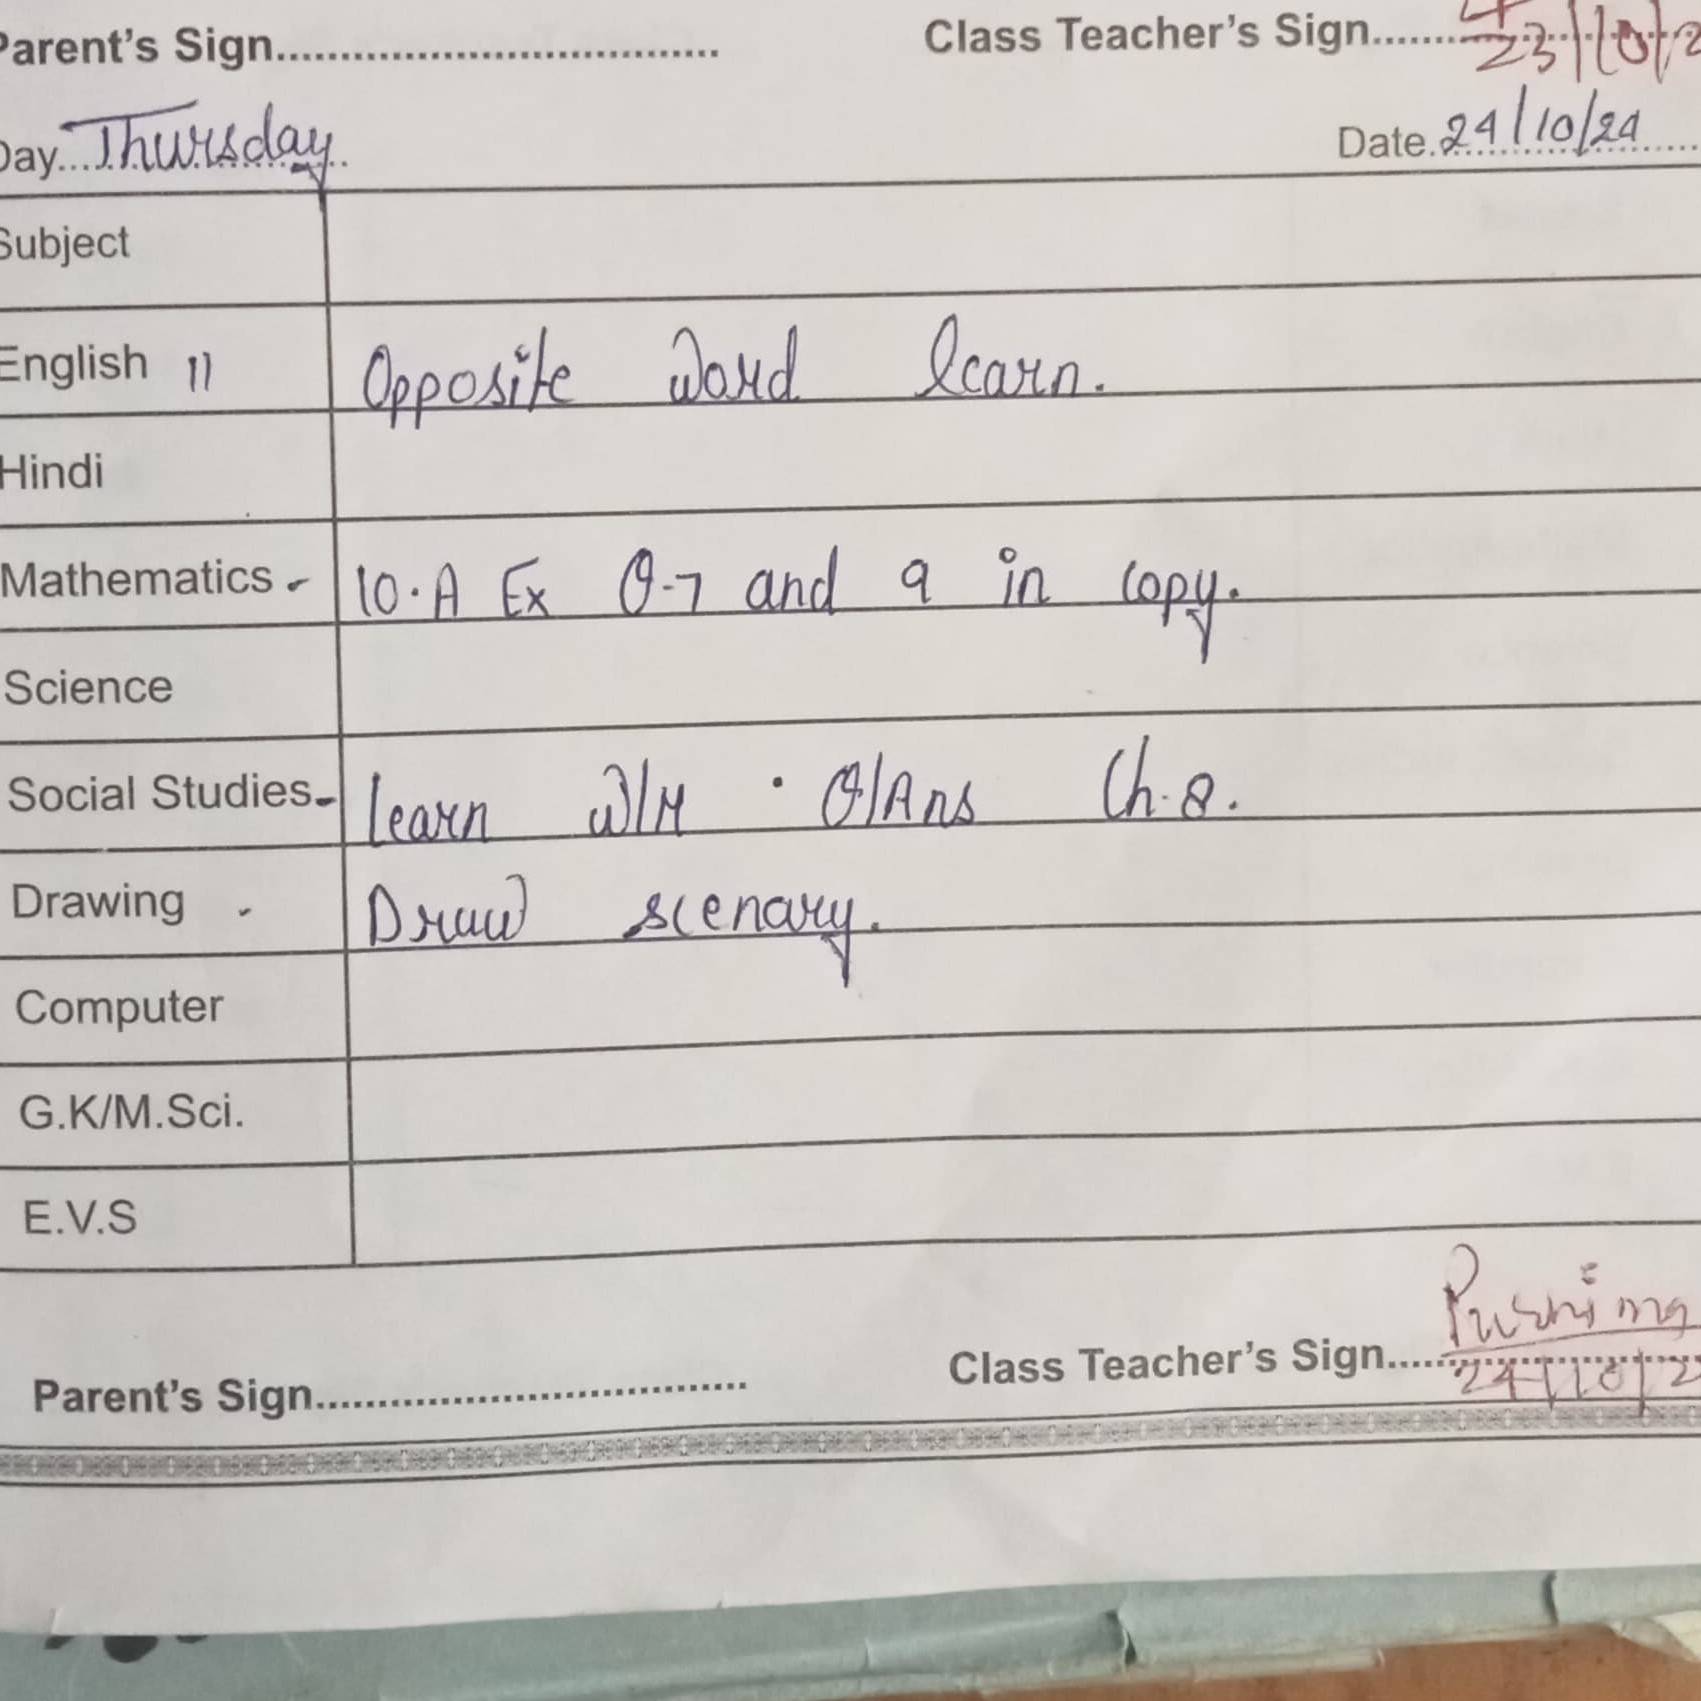 Parent's Sign.................................. Class Teacher's Sign.......... 23/10/2
Day...Thursday.. Date.24/10/24
Subject
English II Opposite Word learn.
Hindi
Mathematics - 10.A Ex Q-7 and 9 in copy.
Science
Social Studies - learn W/M . Q/Ans Ch-8.
Drawing - Draw scenary.
Computer
G.K/M.Sci.
E.V.S
Parent's Sign.................................. Class Teacher's Sign..........
24/10/2